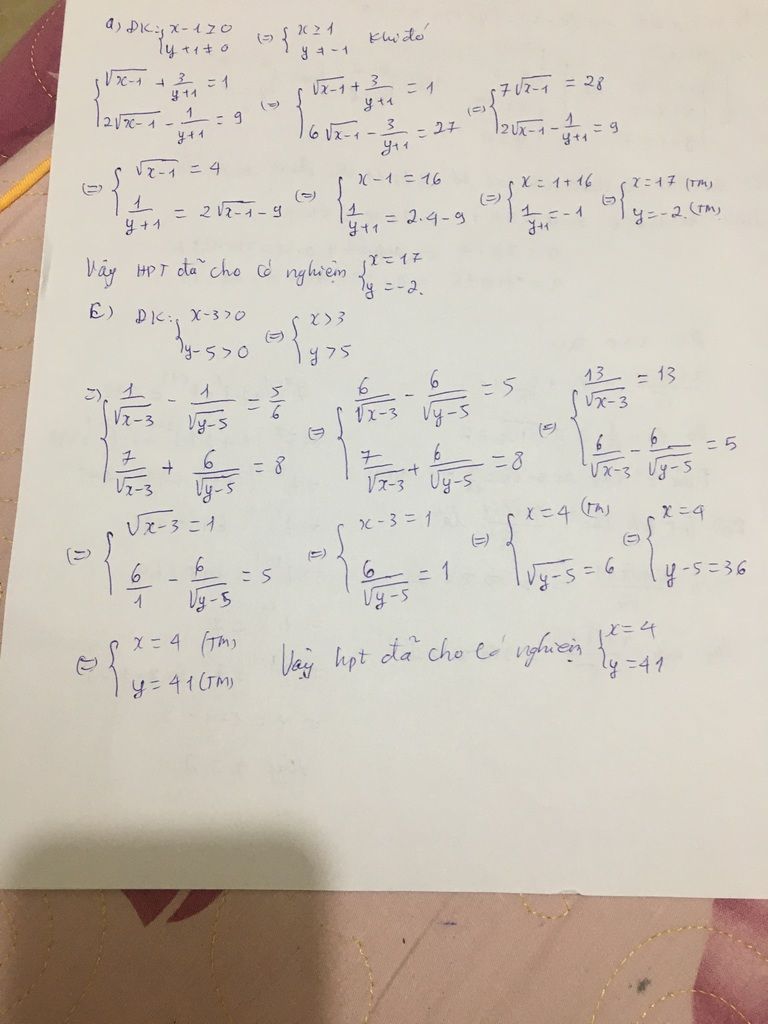 a) ĐK: { x-1 ≥ 0 ; y+1 ≠ 0 (=) { x ≥ 1 ; y ≠ -1 Khi đó
{ √(x-1) + 3/(y+1) = 1 ; 2√(x-1) - 1/(y+1) = 9 (=) { √(x-1) + 3/(y+1) = 1 ; 6√(x-1) - 3/(y+1) = 27 (=) { 7√(x-1) = 28 ; 2√(x-1) - 1/(y+1) = 9
(=) { √(x-1) = 4 ; 1/(y+1) = 2√(x-1) - 9 (=) { x-1 = 16 ; 1/(y+1) = 2.4-9 (=) { x = 1+16 ; 1/(y+1) = -1 (=) { x = 17 (TM) ; y = -2. (TM)
Vậy HPT đã cho có nghiệm { x = 17 ; y = -2.
c) ĐK: { x-3 > 0 ; y-5 > 0 (=) { x > 3 ; y > 5
=) { 1/√(x-3) - 1/√(y-5) = 5/6 ; 7/√(x-3) + 6/√(y-5) = 8 (=) { 6/√(x-3) - 6/√(y-5) = 5 ; 7/√(x-3) + 6/√(y-5) = 8 (=) { 13/√(x-3) = 13 ; 6/√(x-3) - 6/√(y-5) = 5
(=) { √(x-3) = 1 ; 6/1 - 6/√(y-5) = 5 (=) { x-3 = 1 ; 6/√(y-5) = 1 (=) { x = 4 (TM) ; √(y-5) = 6 (=) { x = 4 ; y-5 = 36
(=) { x = 4 (TM) ; y = 41 (TM) Vậy hpt đã cho có nghiệm { x = 4 ; y = 41